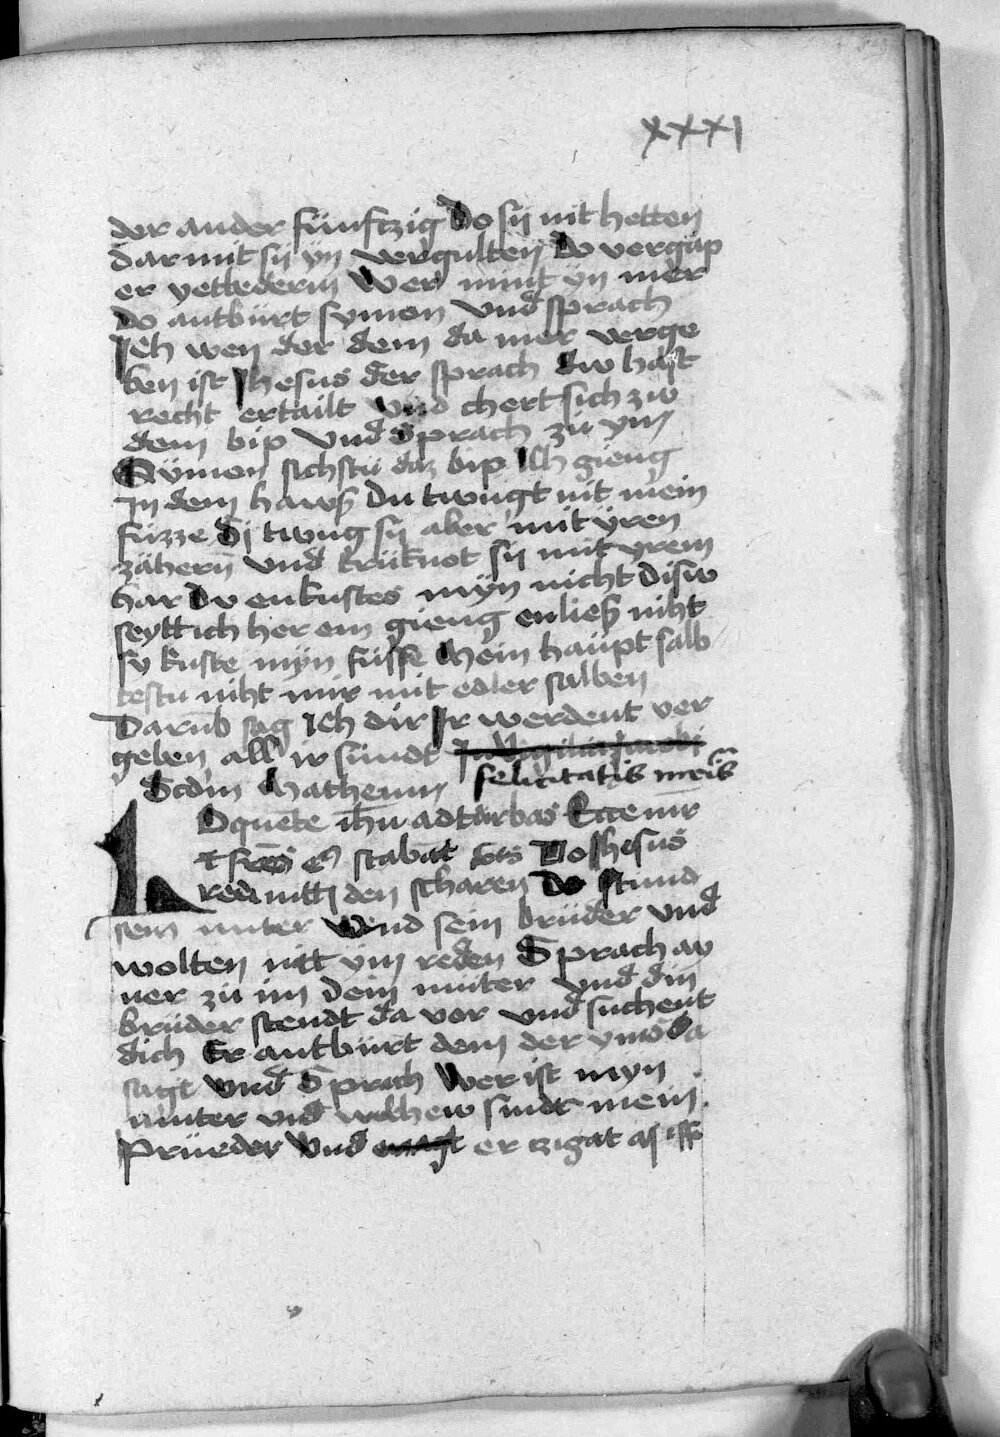 xxxi
der ander fünftzig Do sÿ nit hetten
dar mit sÿ ÿn vergulten Do vergap
er yettbederm Wer mint ÿn mer
do antbürt symon vnd sprach
Ich wen der dem da mer verge
ben ist Jhesus der sprach dw hast
recht ertailt vnd chert sich zw
dem bip vnd Sprach zü ym
Sÿmon sichstu daz bip Ich gieng
In dem hawß Du twugt nit mein
füzze Di twug sÿ aber mit ÿren
zähern vnd trüknot sÿ mit yrem
har Dv enkustes mÿn nicht Disw
seytt ich her em gieng enließ niht
sy kuste mÿn füsse Mein haüpt salb
testu niht mir mit edler salben
Darub̄ sag Ich dir Ir werdent ver
geben all ir sündt Jn Vigilia Jacobi
felicitatis
Scdm Matheum
Loquēte ihū ad turbas Ecce mr̄
Do Jhesus
redt mitt den scharen Do stund
sein muter vnd sein brüder vnd
wolten mit ym reden Sprach ay
ner zü im Dein muter vnd din
brüder stendt da vor vnd suchent
dich Er antbürt dem der ym da
sagt vnd Sprach Wer ist mÿn
muter vnd welhew sindt mein
Prüeder Vnd er tzigat